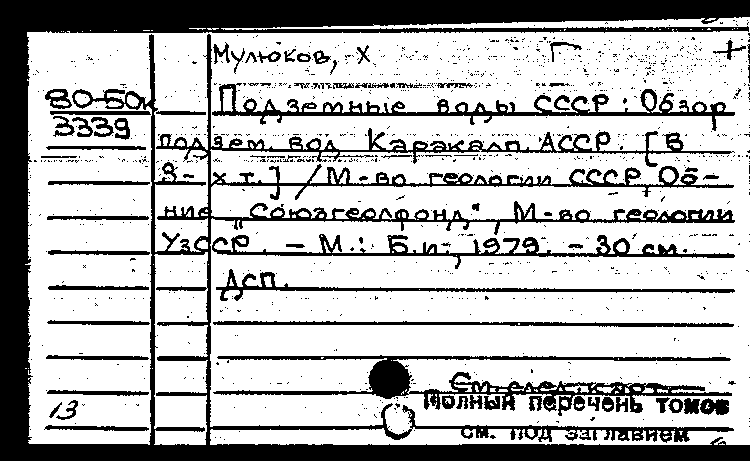 Мулюков, Х
80-50к Подземные воды СССР: Обзор
3339 подзем. вод Каракалп. АССР. [В
3-х т.] / М-во геологии СССР, Об-
ние "Союзгеолфонд", М-во геологии
УзССР. – М.: Б.и., 1979. – 30 см.
ДСП.
См. след. карт.
13 Полный перечень томов
см. под заглавием